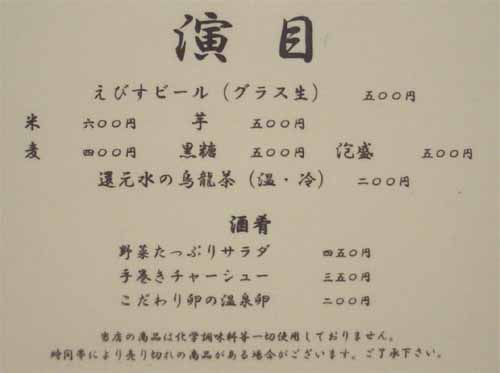 演目
えびすビール（グラス生） 五〇〇円
米 六〇〇円 芋 五〇〇円
麦 四〇〇円 黒糖 五〇〇円 泡盛 五〇〇円
還元水の烏龍茶（温・冷） 二〇〇円
酒肴
野菜たっぷりサラダ 四五〇円
手巻きチャーシュー 三五〇円
こだわり卵の温泉卵 二〇〇円
当店の商品は化学調味料等一切使用しておりません。
時間帯により売り切れの商品がある場合がございます。ご了承下さい。